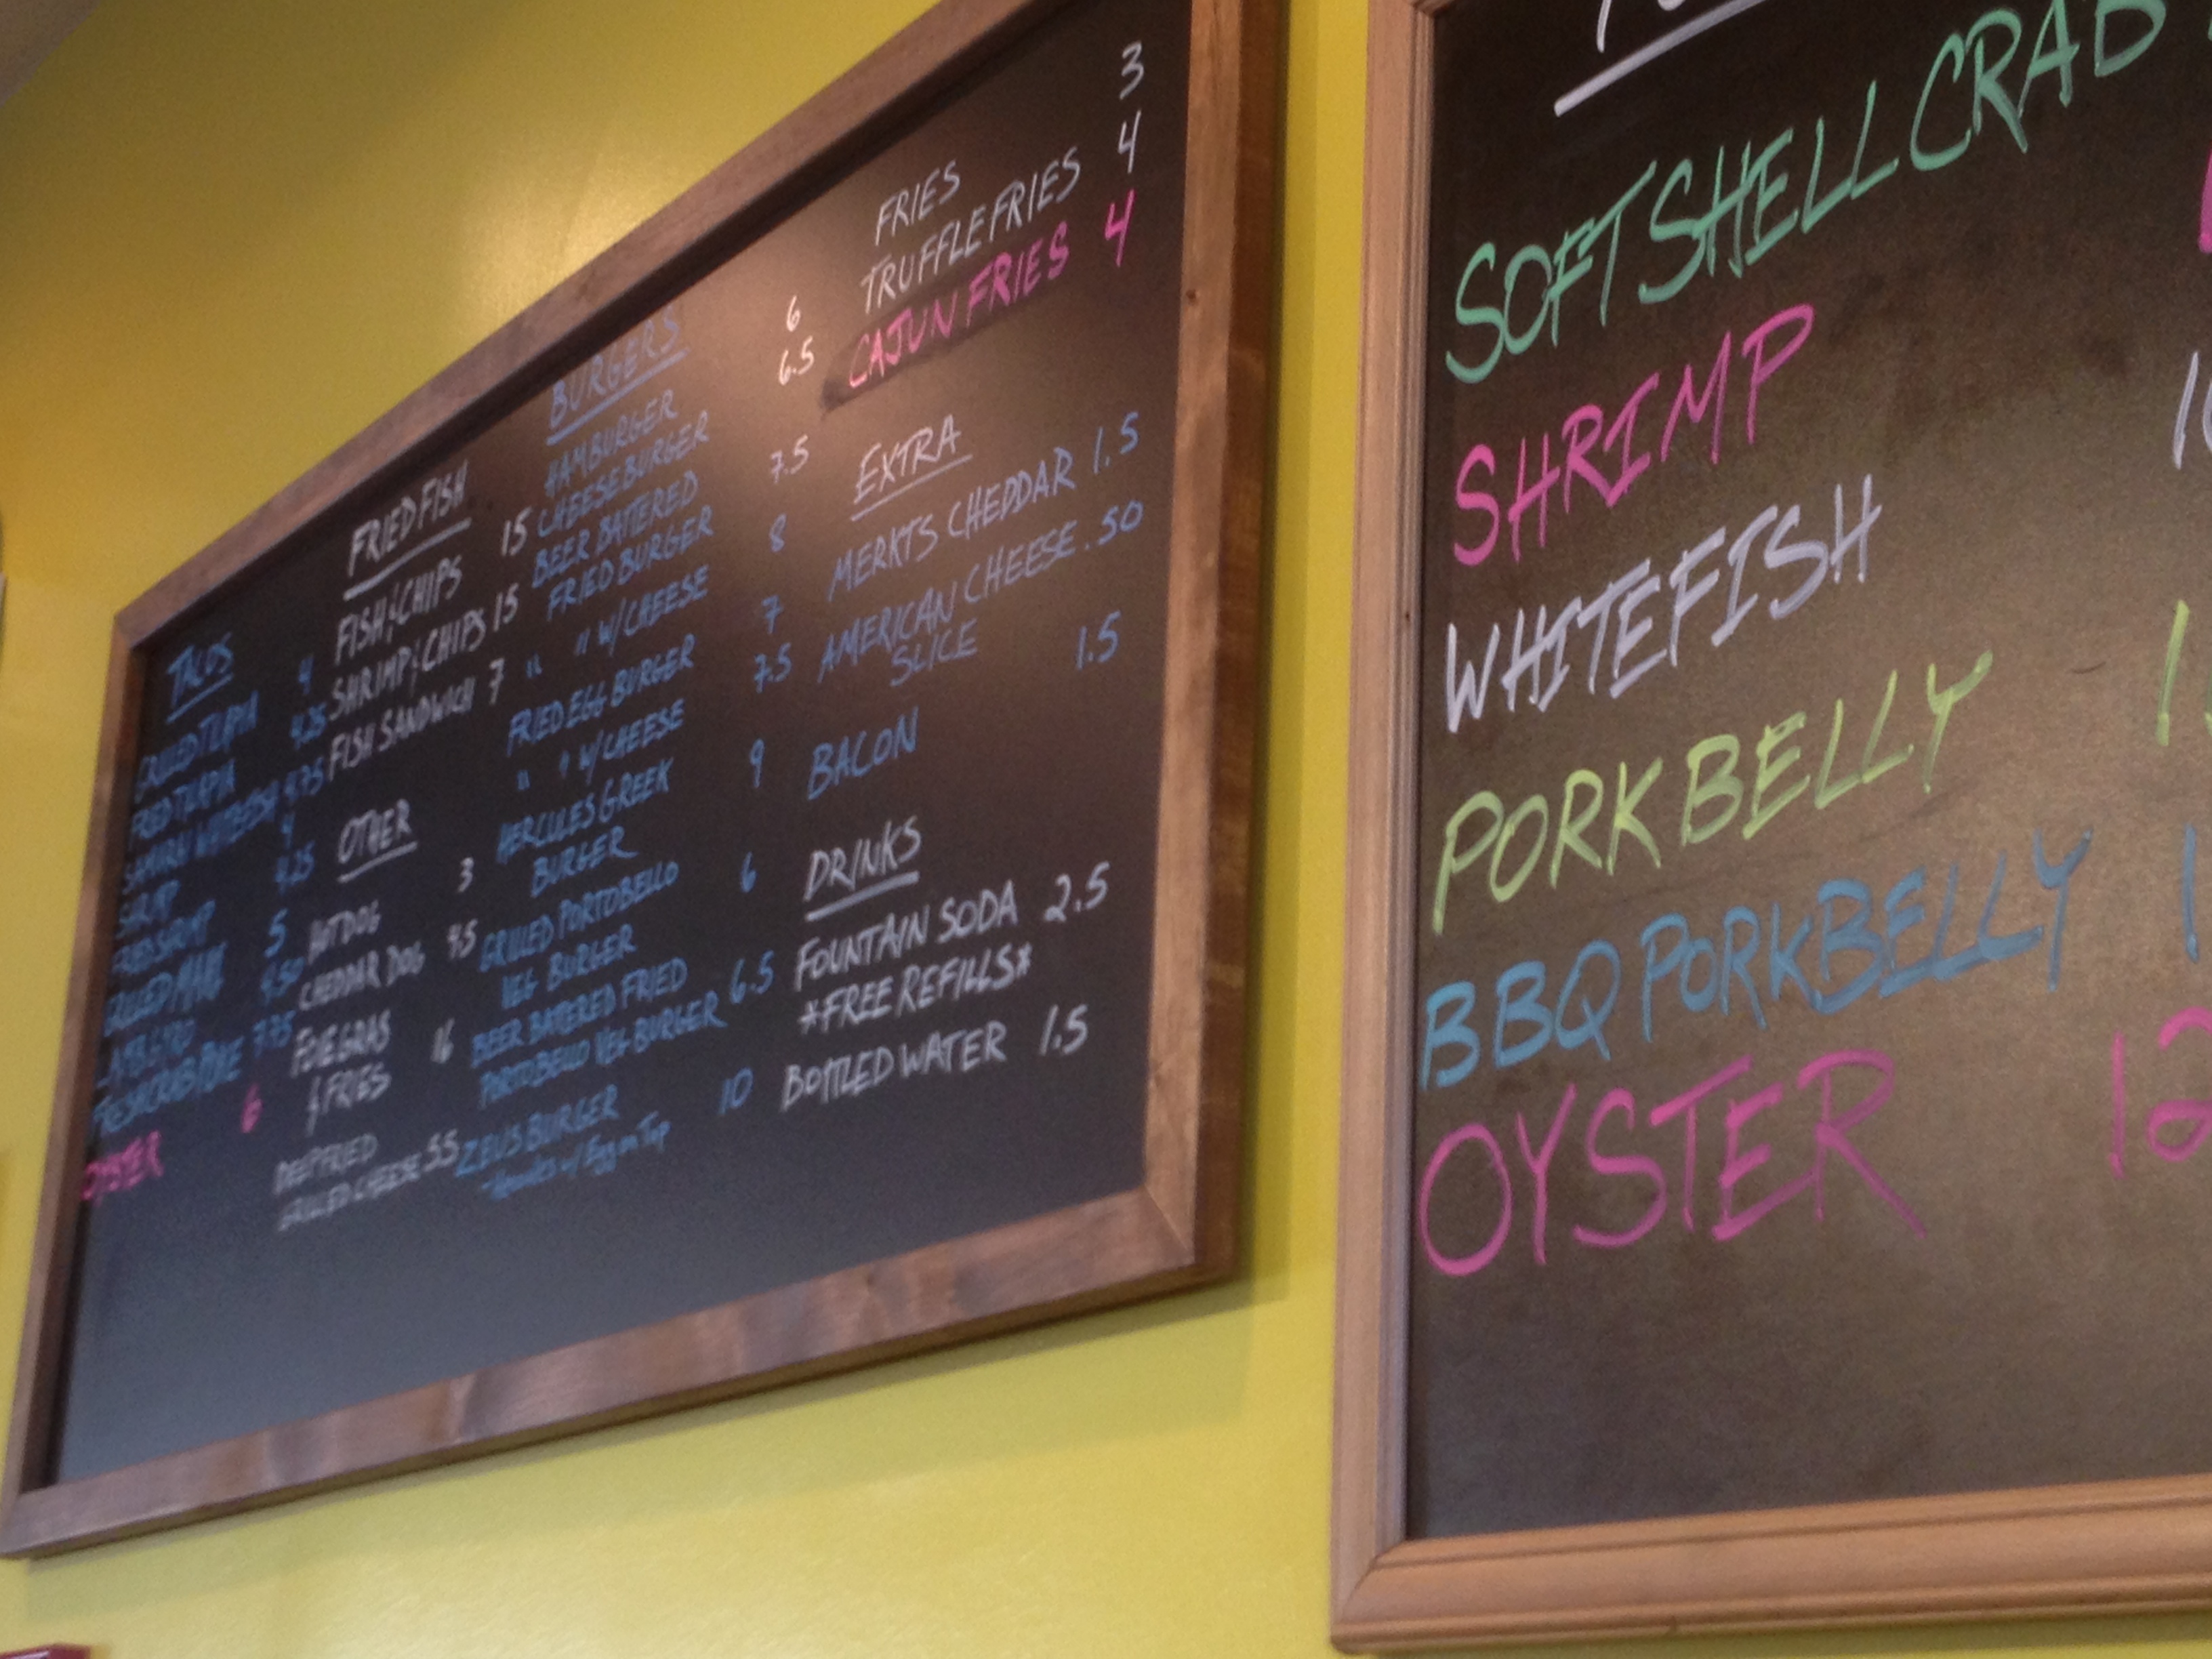 TACOS
GRILLED TILAPIA 4
FRIED TILAPIA 4.25
WHITEFISH 4.75
SHRIMP 4
FRIED SHRIMP 4.25
GRILLED MAHI 5
7.75
OYSTER 6
FRIED FISH
FISH & CHIPS 15
SHRIMP & CHIPS 15
FISH SANDWICH 7
OTHER
HOT DOG 3
CHEDDAR DOG 4.5
FOIE GRAS
& FRIES 16
DEEP FRIED
GRILLED CHEESE 5.5
BURGERS
HAMBURGER 6
CHEESEBURGER 6.5
BEER BATTERED
FRIED BURGER 7.5
" " W/ CHEESE 8
FRIED EGG BURGER 7
" " W/ CHEESE 7.5
HERCULES GREEK
BURGER 9
GRILLED PORTOBELLO
VEG BURGER 6
BEER BATTERED FRIED
PORTOBELLO VEG BURGER 6.5
ZEUS BURGER 10
w/ Egg on Top
FRIES 3
TRUFFLE FRIES 4
CAJUN FRIES 4
EXTRA
MERKTS CHEDDAR 1.5
AMERICAN CHEESE .50
SLICE
BACON 1.5
DRINKS
FOUNTAIN SODA 2.5
*FREE REFILLS*
BOTTLED WATER 1.5
SOFT SHELL CRAB
SHRIMP
WHITEFISH
PORK BELLY
BBQ PORK BELLY
OYSTER 12